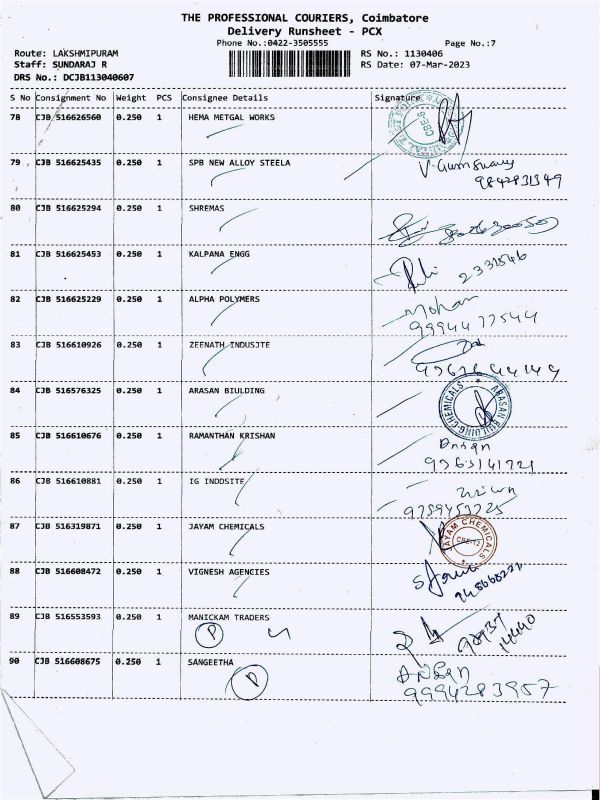 THE PROFESSIONAL COURIERS, Coimbatore
Delivery Runsheet - PCX
Phone No.:0422-3505555 Page No.:7
Route: LAKSHMIPURAM RS No.: 1130406
Staff: SUNDARAJ R RS Date: 07-Mar-2023
DRS No.: DCJB113040607
S No Consignment No Weight PCS Consignee Details Signature
78 CJB 516626560 0.250 1 HEMA METGAL WORKS
79 CJB 516625435 0.250 1 SPB NEW ALLOY STEELA
9842831349
80 CJB 516625294 0.250 1 SHREMAS
81 CJB 516625453 0.250 1 KALPANA ENGG
2331546
82 CJB 516625229 0.250 1 ALPHA POLYMERS Mohan
9994477544
83 CJB 516610926 0.250 1 ZEENATH INDUSJTE
84 CJB 516576325 0.250 1 ARASAN BIULDING
ARASAN BUILDING CHEMICALS
85 CJB 516610676 0.250 1 RAMANTHAN KRISHAN
9363141721
86 CJB 516610881 0.250 1 IG INDDSITE
9789453725
87 CJB 516319871 0.250 1 JAYAM CHEMICALS JAYAM CHEMICALS
CBE-12
88 CJB 516608472 0.250 1 VIGNESH AGENCIES
89 CJB 516553593 0.250 1 MANICKAM TRADERS
P 98937
14440
90 CJB 516608675 0.250 1 SANGEETHA
P 9994283957